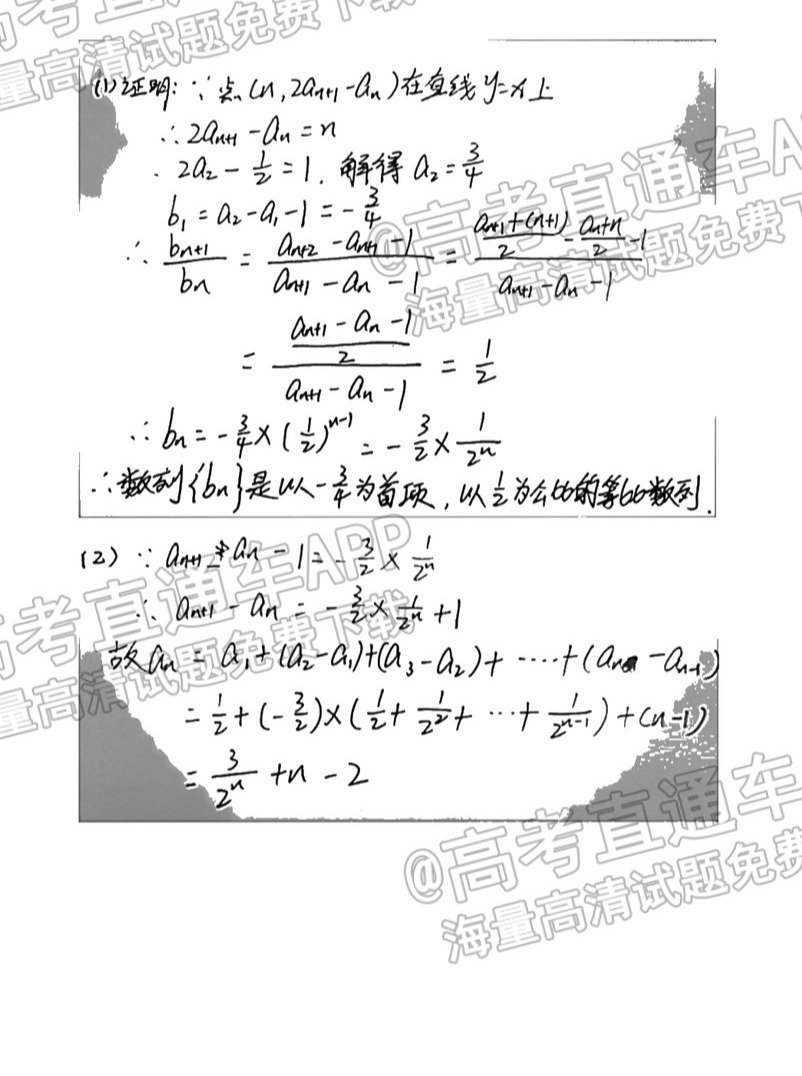 高考直通车APP
海量高清试题免费下载
(1)证明:∵点(n, 2aₙ₊₁-aₙ)在直线y=x上
∴2aₙ₊₁-aₙ=n
∴2a₂-1/2=1, 解得 a₂=3/4
b₁=a₂-a₁-1=-3/4
@高考直通车A
海量高清试题免费下
∴ bₙ₊₁/bₙ = (aₙ₊₂-aₙ₊₁-1)/(aₙ₊₁-aₙ-1) = ((aₙ₊₁+(n+1))/2-(aₙ+n)/2-1)/(aₙ₊₁-aₙ-1)
= ((aₙ₊₁-aₙ-1)/2)/(aₙ₊₁-aₙ-1) = 1/2
∴bₙ=-3/4×(1/2)ⁿ⁻¹=-3/2×1/2ⁿ
∴数列{bₙ}是以-3/4为首项, 以1/2为公比的等比数列.
(2) ∵aₙ₊₁-aₙ-1=-3/2×1/2ⁿ
高考直通车APP
∴aₙ₊₁-aₙ=-3/2×1/2ⁿ+1
海量高清试题免费下载
故aₙ=a₁+(a₂-a₁)+(a₃-a₂)+……+(aₙ-aₙ₋₁)
=1/2+(-3/2)×(1/2+1/2²+…+1/2ⁿ⁻¹)+(n-1)
=3/2ⁿ+n-2
@高考直通车
海量高清试题免费